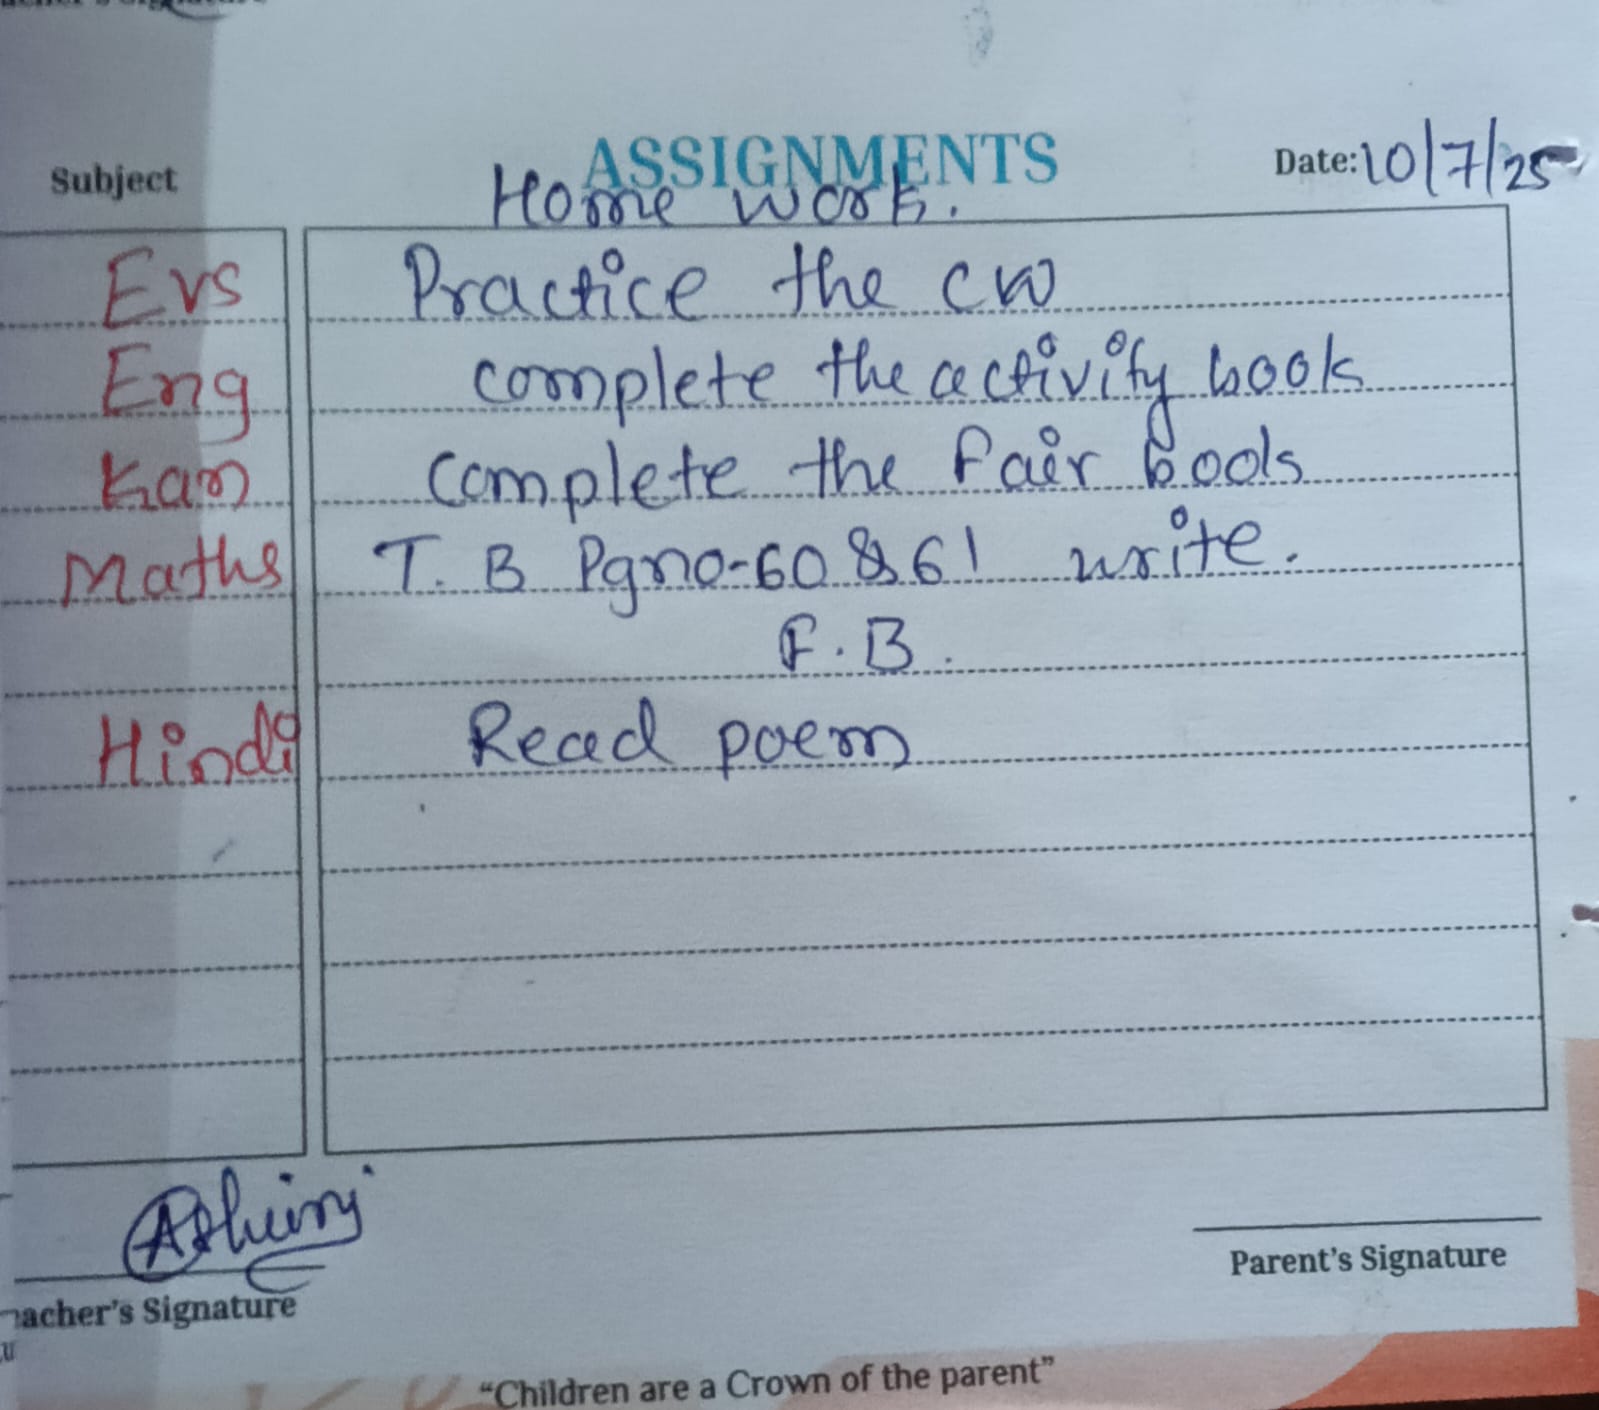 Subject
ASSIGNMENTS
Date: 10/7/25
Home work.
Evs Practice the cw
Eng complete the activity book
Kan complete the fair books
Maths T. B Pgno-60 & 61 write.
F.B.
Hindi Read poem
Parent's Signature
acher's Signature
"Children are a Crown of the parent"